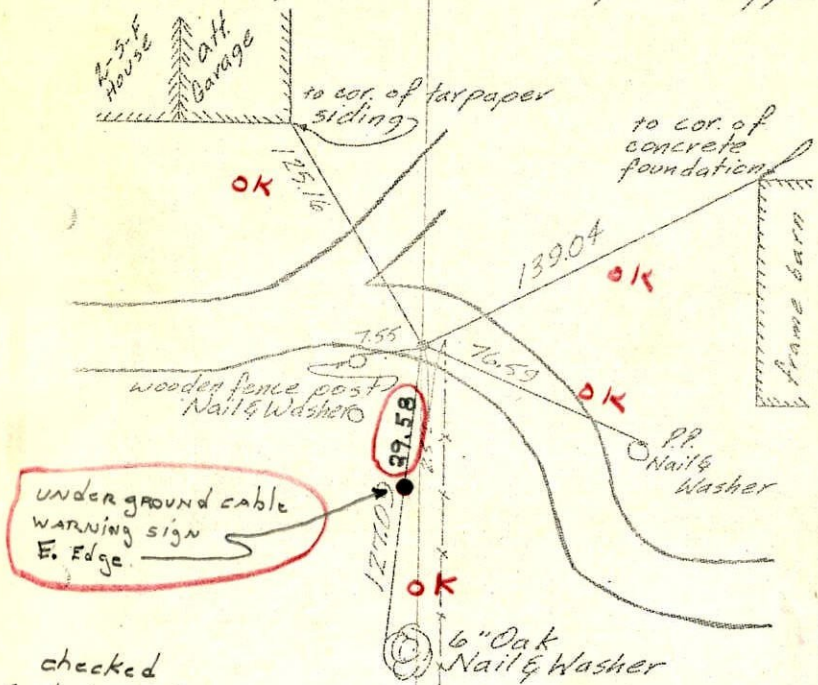 2-S-F
House
att.
Garage
to cor. of tarpaper
siding
to cor. of
concrete
foundation
125.16
OK
139.04
OK
frame barn
7.55
76.59
wooden fence post
Nail & Washer
OK
39.58
P.P.
Nail &
Washer
UNDERGROUND CABLE
WARNING SIGN
E. Edge
127.09
OK
6" Oak
Nail & Washer
checked